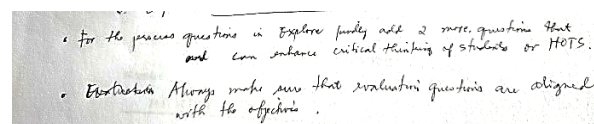 • For the process questions in Explore kindly add 2 more. questions that
can enhance critical thinking of students or HOTS.
• Always make sure that evaluation questions are aligned
with the objectives.